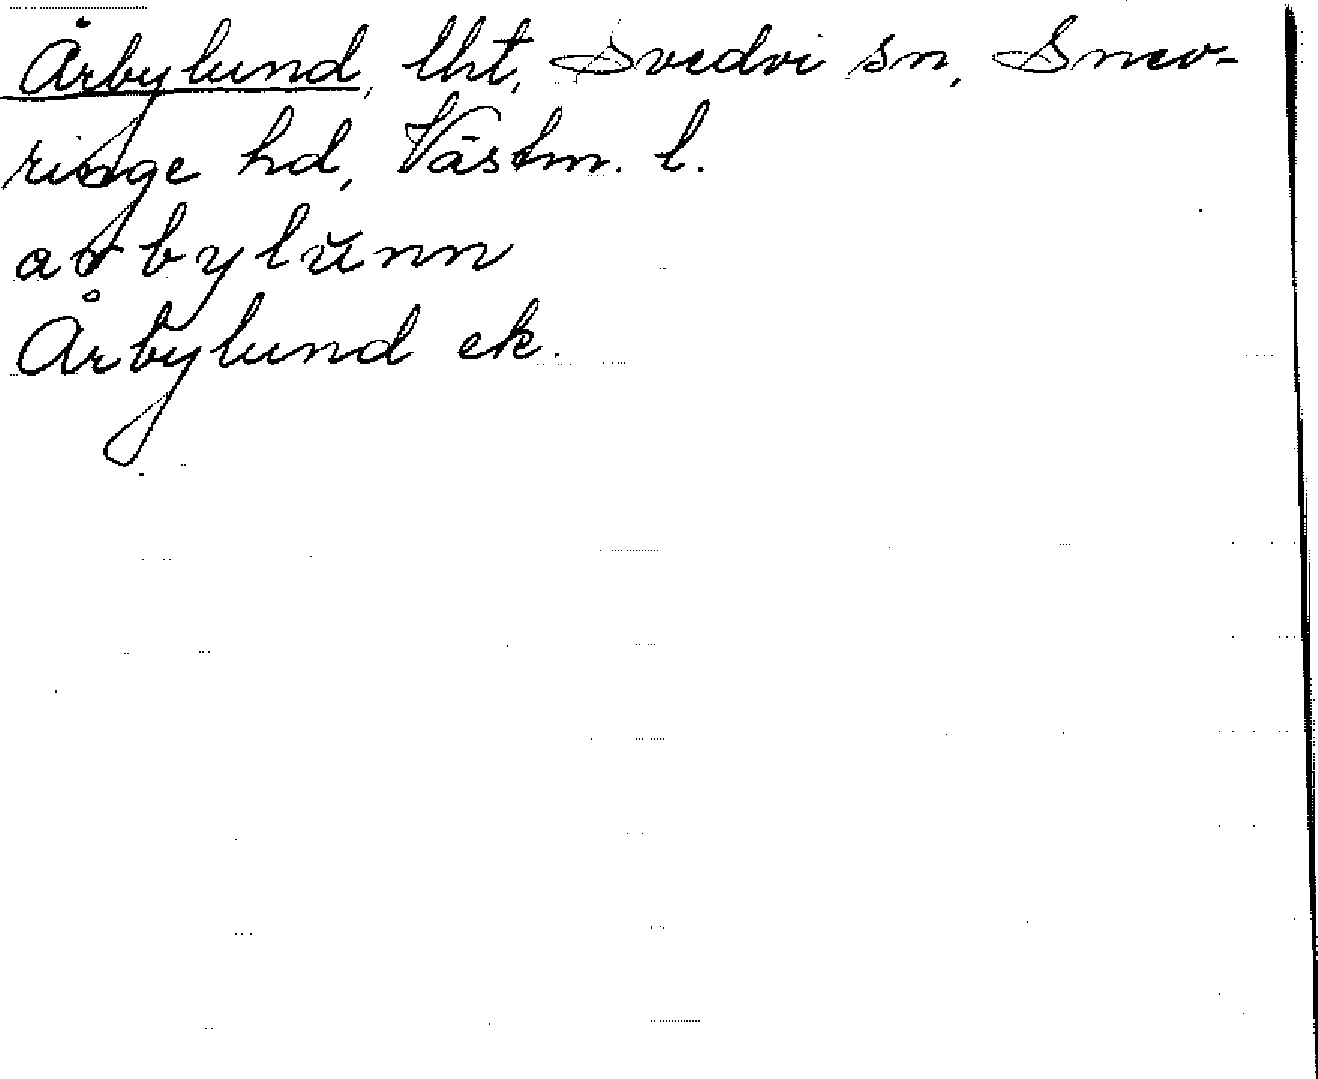 Årbylund, lht, Svedvi sn, Snev-
ringe hd, Västm. l.
arbylŭnn
Årbylund ek.